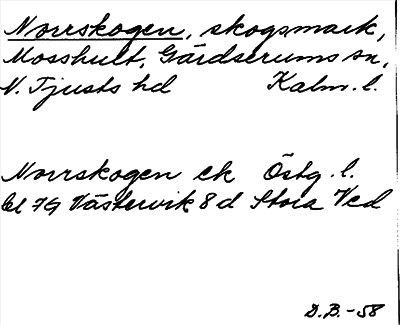 Norrskogen, skogsmark,
Mosshult, Gärdserums sn,
N. Tjusts hd Kalm. l.
Norrskogen ek Östg. l.
bl 7G Västervik 8 d Stora Ved
D.B. -58